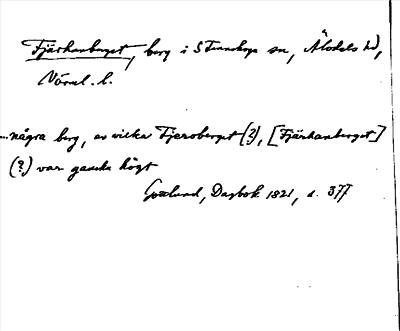 Fjärhanberget, berg i S Finnskoga sn, Älvdals hd,
Värml. l.
...några berg, av vilka Fjeroberget (?), [Fjärhanberget]
(?) var ganska högt
Gottlund, Dagbok 1821, s. 377